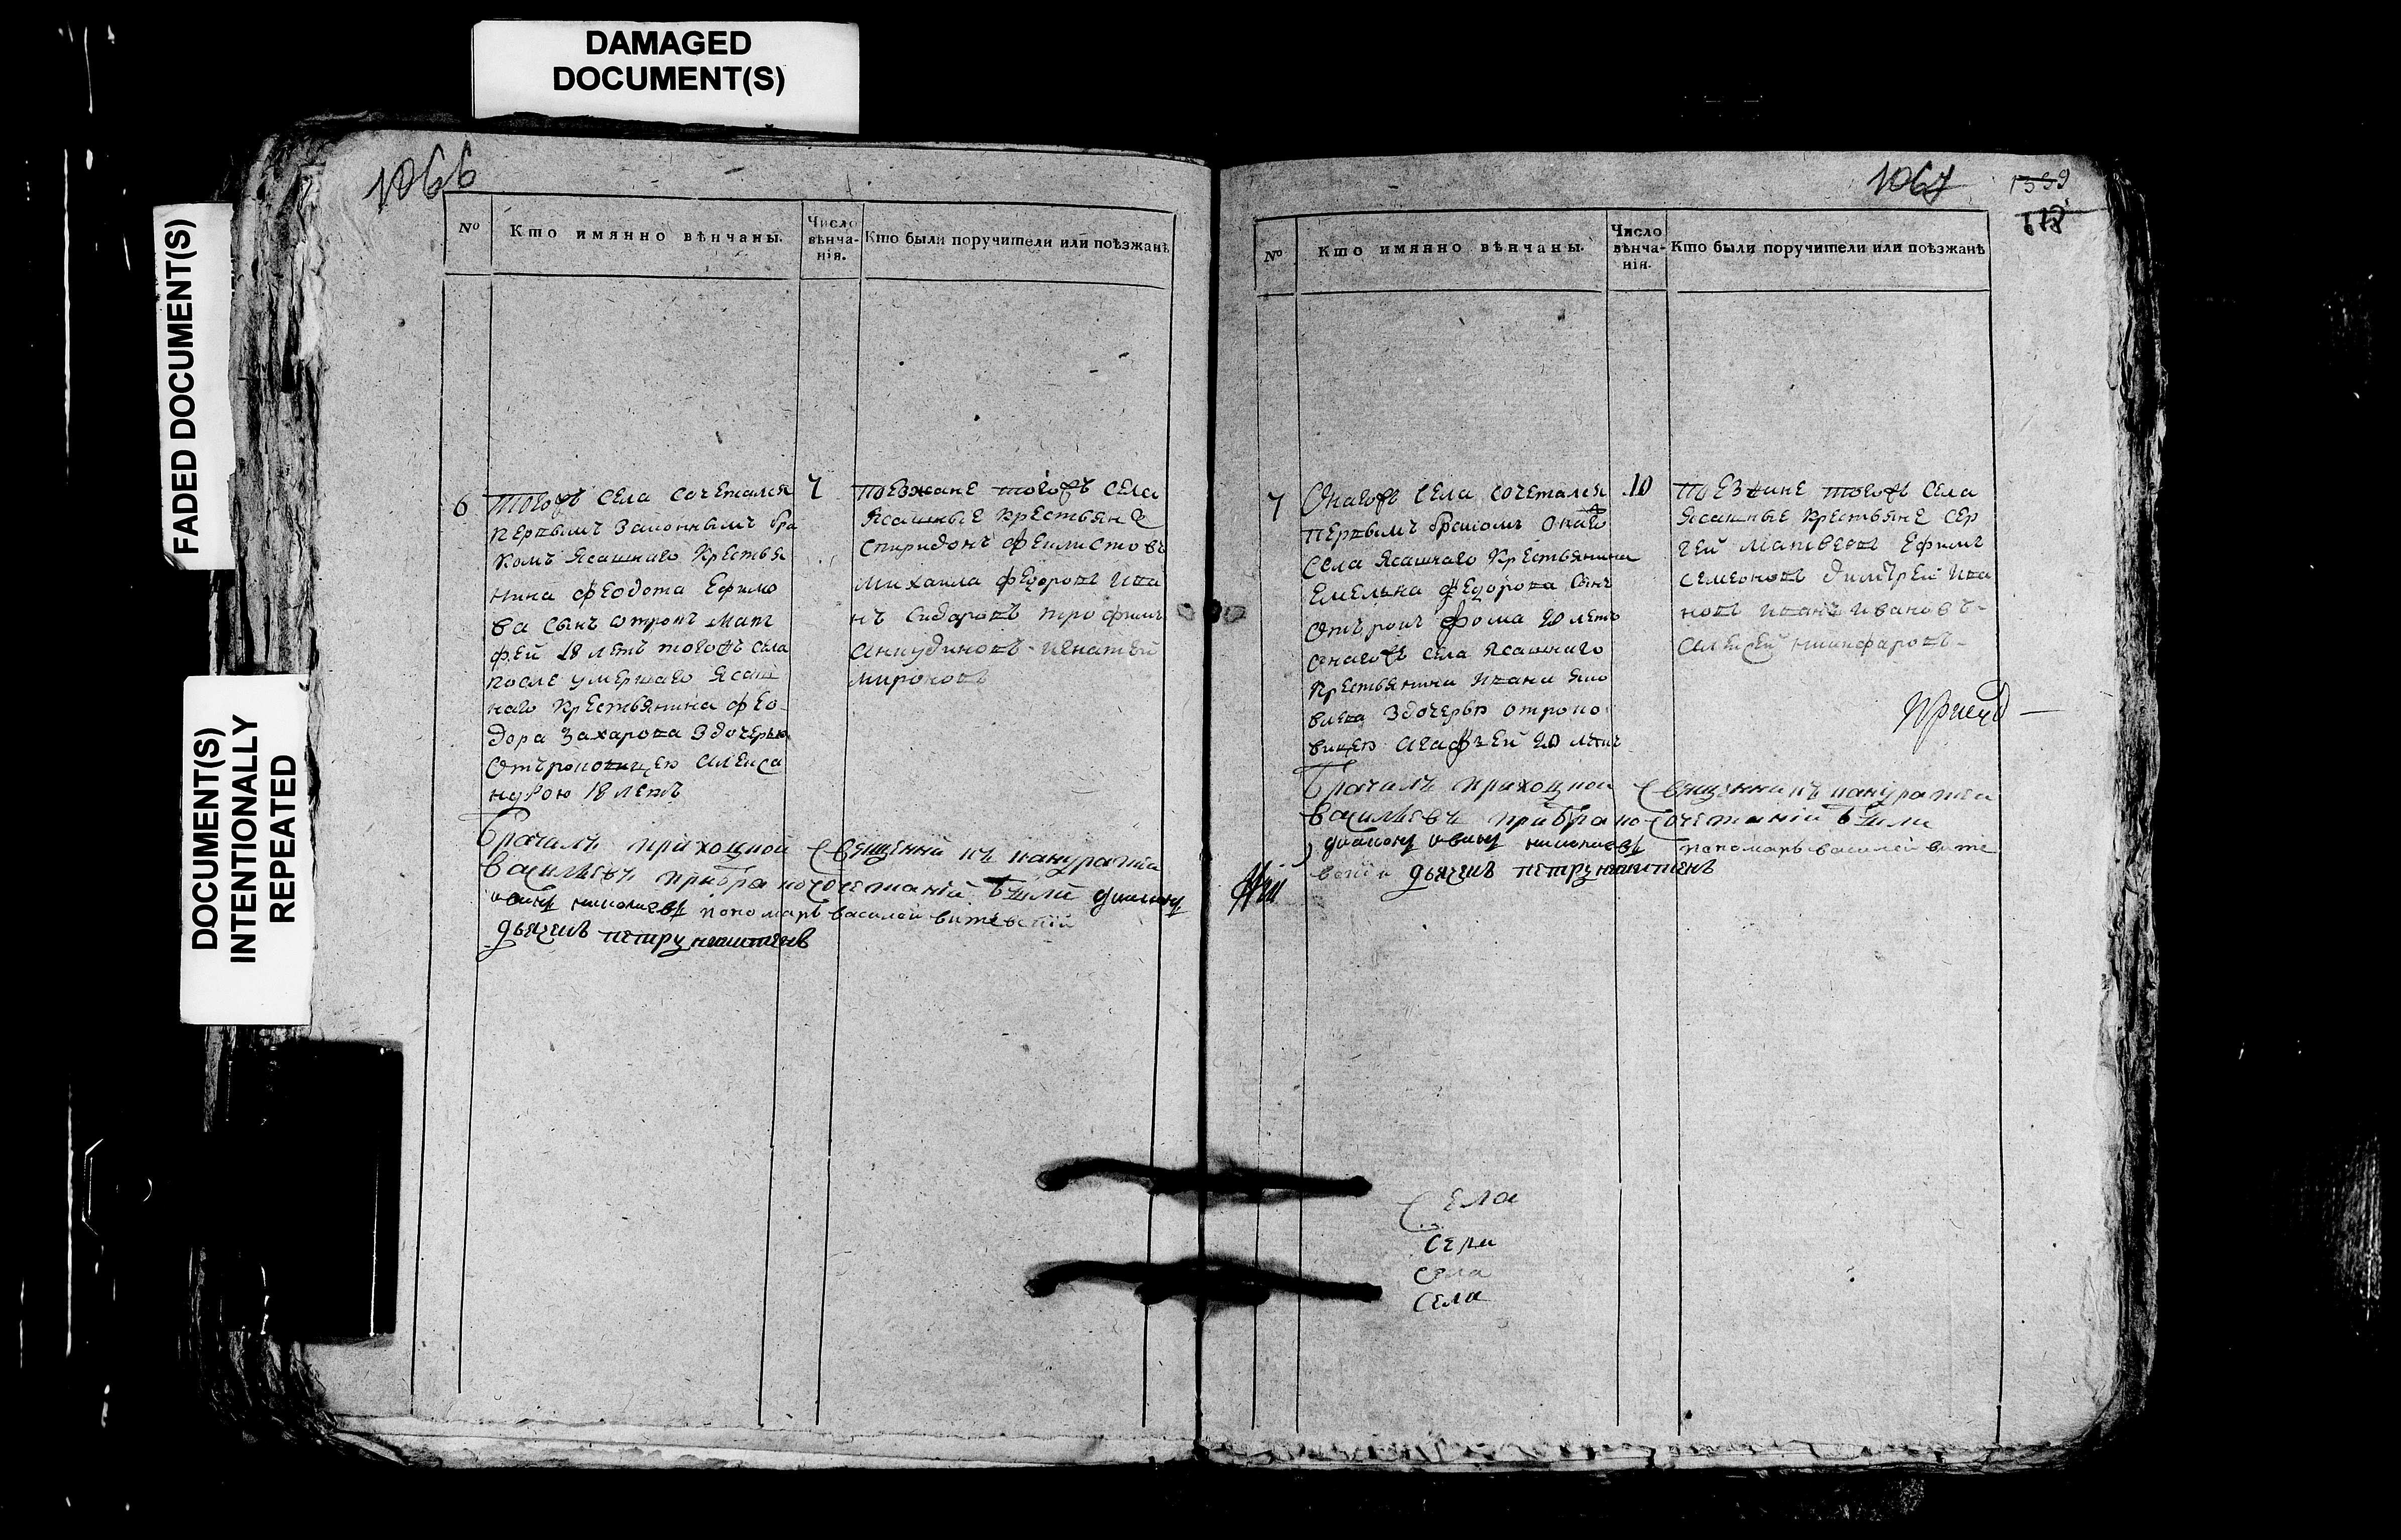 DAMAGED
DOCUMENT(S)
FADED DOCUMENT(S)
DOCUMENT(S)
INTENTIONALLY
REPEATED
1066
№
Кто имянно вѣнчаны.
Число
вѣнча-
нія.
Кто были поручители или поѣзжанѣ
6
тогожъ села сочетался
первымъ законнымъ бра
комъ ясашнаго крестья
нина феодота Ефимо
ва сынъ отрокъ Мат
фей 18 летъ тогожъ села
после умершаго ясаш
наго крестьянина фео
дора Захарова здочерью
отъроковицею Алекса
ндрою 18 летъ
7
поезжане тогожъ села
ясашные крестьяне
спиридонъ феилистовъ
михаила федоровъ ива
нъ сидаровъ трофимъ
анкудиновъ игнатей
мироновъ
Брачилъ приходной Священникъ
Васильевъ при бракосочетаній были
пономарь василей
дьячекъ петръ никитинъ
1067
1339
678
№
Кто имянно вѣнчаны.
Число
вѣнча-
нія.
Кто были поручители или поѣзжанѣ
7
Онагожъ села сочетался
первымъ бракомъ онаго
села ясашнаго крестьянина
Емельяна федорова сынъ
отърокъ фома 20 летъ
онагожъ села ясашнаго
крестьянина ивана яко
влева здочерью отроко
вицею агафьей 20 летъ
10
поезжане тогожъ села
ясашные крестьяне сер
гей матвеевъ Ефимъ
семеновъ димитрей ива
новъ иванъ ивановъ
алексей никифаровъ
Брачилъ приходной Священникъ
васильевъ при бракосочетаній были
пономарь василей
дьячекъ петръ никитинъ
Села
села
села
села